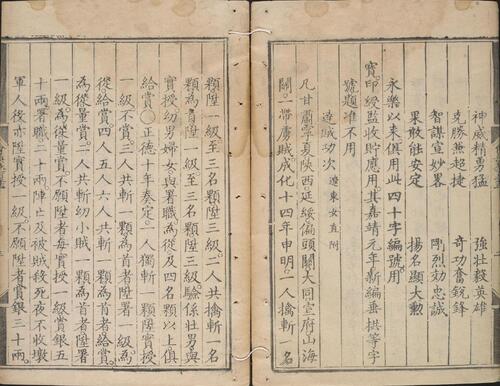 神威精勇猛　強壯毅英雄
克勝兼超捷　奇功奮銳鋒
智謀宣妙畧　剛烈効忠誠
果敢能安定　揚名顯大勳
永樂以来俱用此四十字編號用
寶印綬監收貯應用其嘉靖元年新編垂拱等字
號題准不用
達賊功次 遼東女直附
凡甘肅寧夏陝西延綏偏頭關大同宣府山海
關一帶虜賊成化十四年申明一人擒斬一名
顆陞一級至三名顆陞三級二人共擒斬一名
顆為首陞一級至三名顆陞三級驗係壯男與
實授幼男婦女與署職為從及四名顆以上俱
給賞〇正德十年奏定一人獨斬一顆陞實授
一級不賞三人共斬一顆為首者陞署一級為
從給賞四人五人六人共斬一顆為首者給賞
為從量賞二人共斬幼小賊一顆為首者陞署
一級為從量賞不願陞者每實授一級賞銀五
十兩署職二十兩陣亡及被賊殺死夜不收墩
軍人後亦陞實授一級不願陞者賞銀三十兩